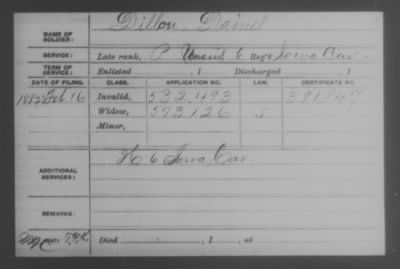 Dillon, Daniel
NAME OF SOLDIER:
SERVICE: Late rank, P Unasid 6 Reg't Iowa Cav.
TERM OF SERVICE: Enlisted , 1 Discharged , 1
DATE OF FILING. CLASS. APPLICATION NO. LAW. CERTIFICATE NO.
16 Invalid, 532,493
Widow, 573,126
Minor,
ADDITIONAL SERVICES: H 6 Iowa Cav.
REMARKS:
Died , 1 , at